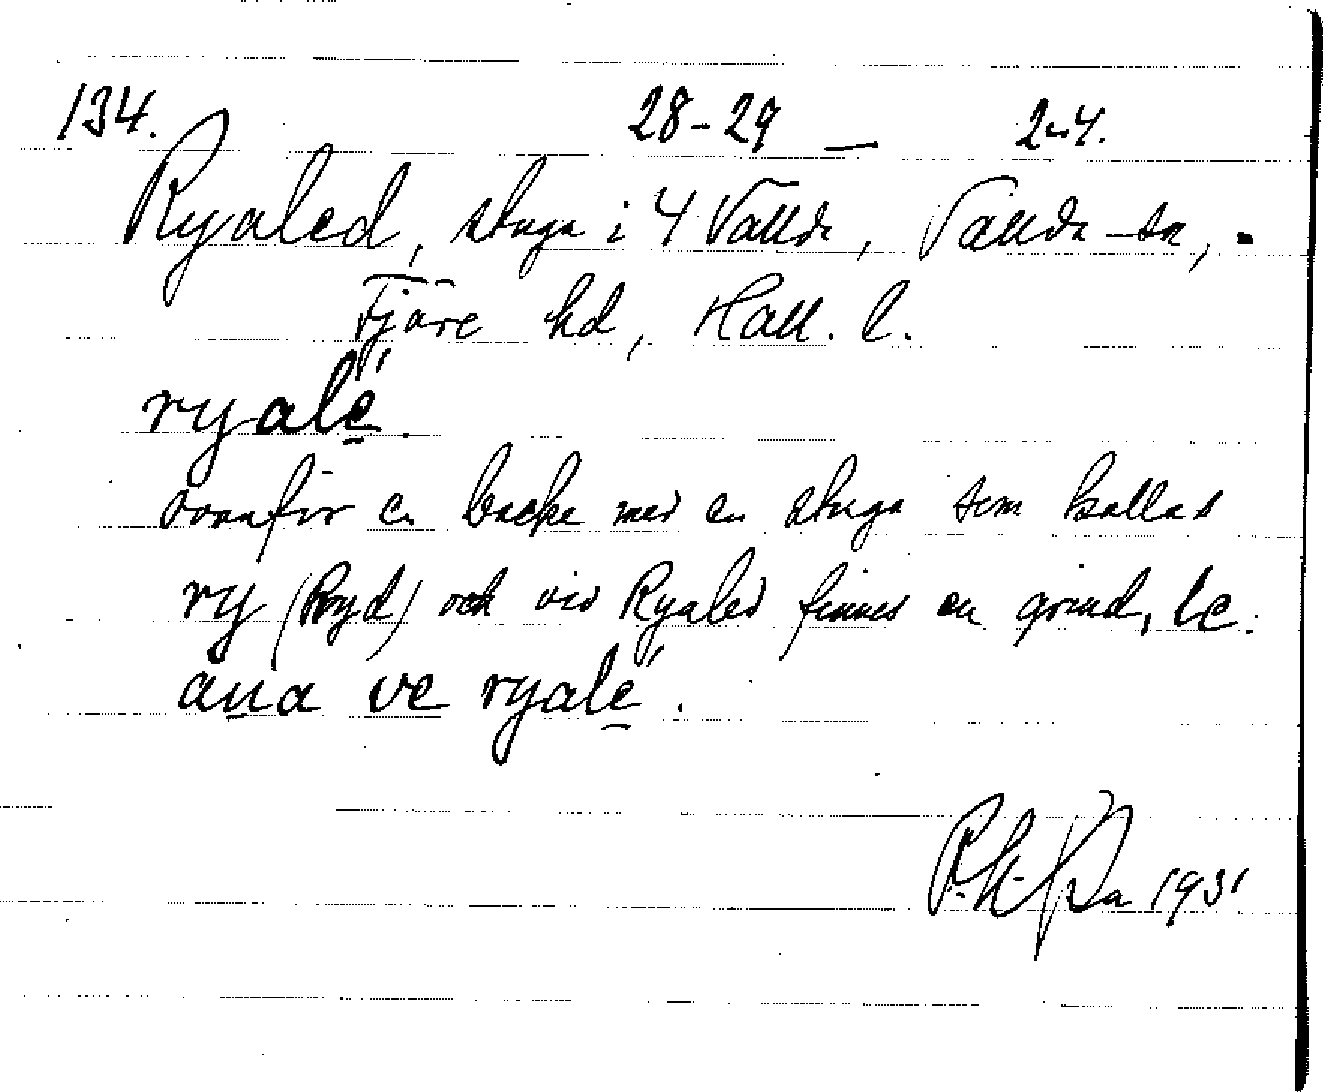 134. 28-29 — 2-4.
Ryaled, stuga i 4 Vallda, Vallda sn,
Fjäre hd, Hall. l.
ryalé.
ovanför en backe med en stuga som kallas
ry (Ryd) och vid Ryaled finnes en grind, le.
ana ve ryalé.
1931